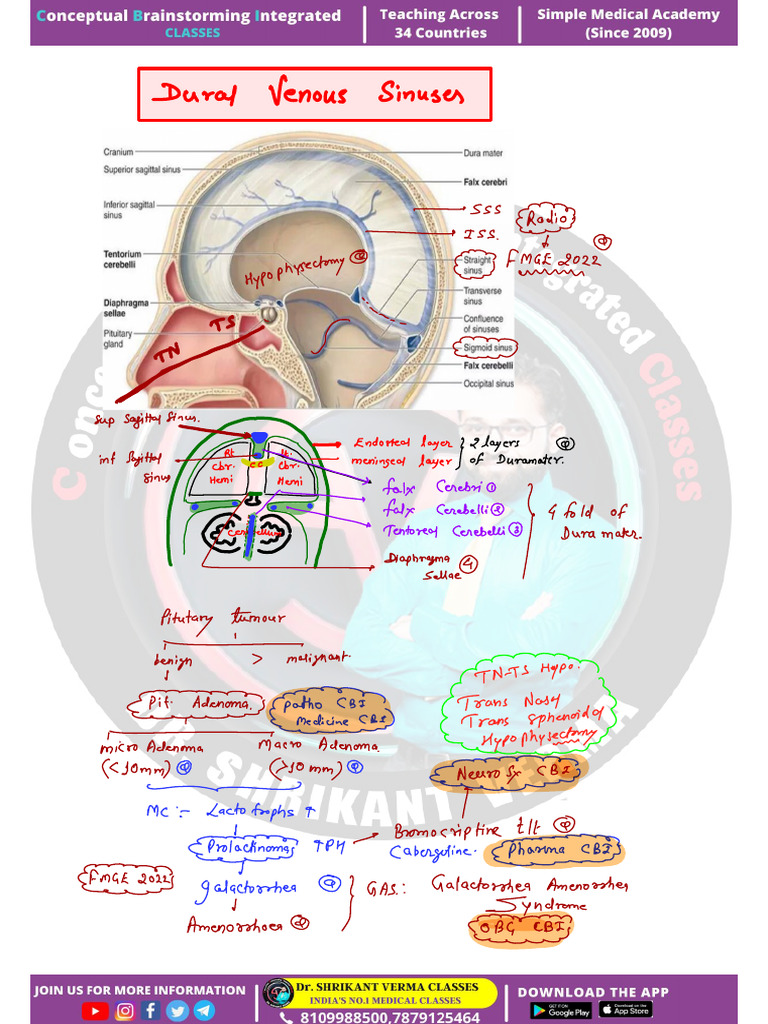 Conceptual Brainstorming Integrated
CLASSES
Teaching Across
34 Countries
Simple Medical Academy
(Since 2009)
Dural Venous Sinuses
Cranium
Superior sagittal sinus
Inferior sagittal
sinus
Tentorium
cerebelli
Diaphragma
sellae
Pituitary
gland
Dura mater
Falx cerebri
SSS
ISS.
Radio
Straight
sinus
FMGE 2022
Transverse
sinus
Confluence
of sinuses
Sigmoid sinus
Falx cerebelli
Occipital sinus
Hypophysectomy
TS
TN
Sup Sagittal Sinus.
inf Sagittal
Sinus
Rt
Cbr.
Hemi
CC
Lt.
Cbr.
Hemi
Cerebellum
Endosteal layer
meningeal layer
2 layers
of Duramater.
falx Cerebri 1
falx Cerebelli 2
Tentoreal Cerebelli 3
Diaphragma
Sellae 4
4 fold of
Dura mater.
Pitutary tumour
benign > malignant.
Pit. Adenoma.
Patho CBI
Medicine CBI
micro Adenoma
(<10mm)
Macro Adenoma.
(>10mm)
TN-TS Hypo.
Trans Nasal
Trans Sphenoidal
Hypophysectomy
Neuro Sx CBI
MC :- Lactotrophs ↑
Prolactinomas ↑PH
Bromocriptine t/t
Cabergoline.
Pharma CBI
FMGE 2022
galactorrhea
Amenorrhoea
GAS:
Galactorrhea Amenorrhea
Syndrome
OBG CBI
Conceptual Brainstorming Integrated Classes
DR. SHRIKANT VERMA
JOIN US FOR MORE INFORMATION
Dr. SHRIKANT VERMA CLASSES
INDIA'S NO.1 MEDICAL CLASSES
8109988500,7879125464
DOWNLOAD THE APP
GET IT ON
Google Play
Download on the
App Store